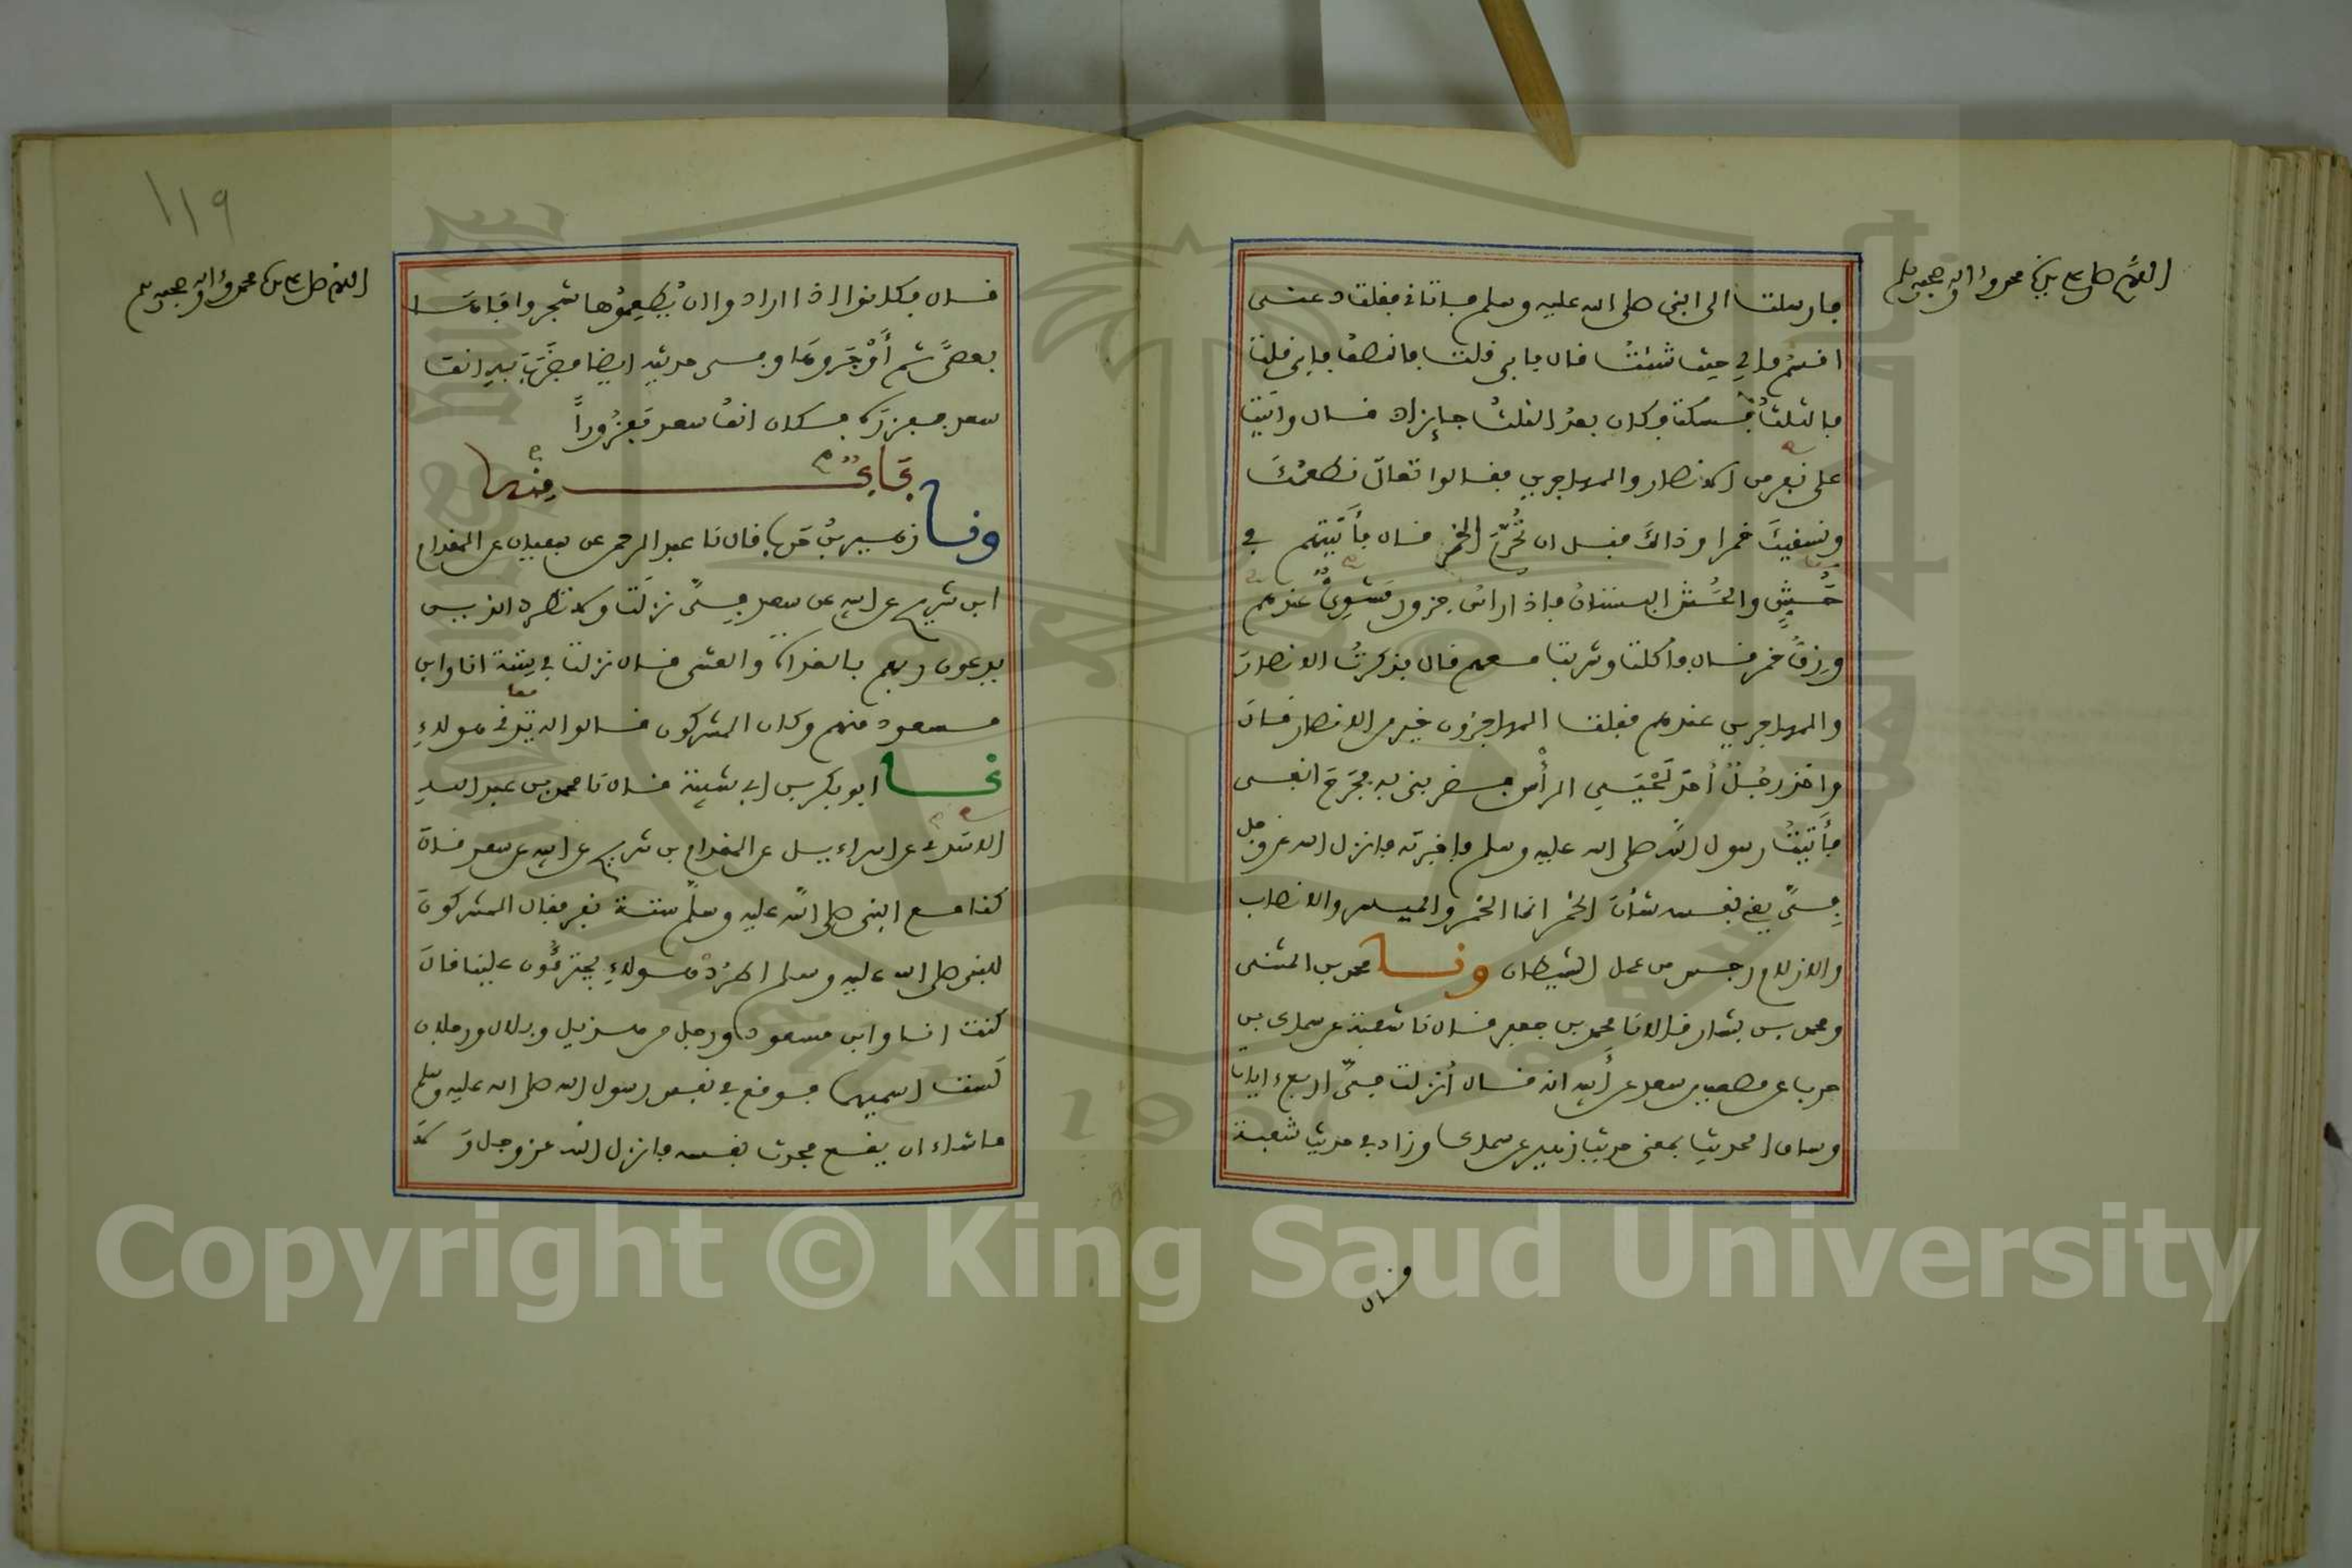 اللهم صل على سيدنا محمد وآله وصحبه وسلم
فارسلت الى النبي صلى الله عليه وسلم فاتاني فقلت دعني
اقسم مالي حيث شئت قال فابى قلت فالنصف فابى قلت
فالثلث فسكت وكان بعد الثلث جايزا قال واتيت
على نفر من الانصار والمهاجرين فقالوا تعال نطعمك
ونسقيك خمرا وذلك قبل ان تحرم الخمر قال فأتيتهم في
حش والحش البستان فاذا راس جزور مشوي عندهم
وزق خمر قال فاكلت وشربت معهم قال فذكرت الانصار
والمهاجرين عندهم فقلت المهاجرون خير من الانصار قال
واخذ رجل أحد لحيي الرأس فضربني به فجرح انفي
فأتيت رسول الله صلى الله عليه وسلم فاخبرته فانزل الله عز وجل
في يعني نفسه شأن الخمر انما الخمر والميسر والانصاب
والازلام رجس من عمل الشيطان ونا محمد بن المثنى
ومحمد بن بشار قالا نا محمد بن جعفر قال نا شعبة عن سماك بن
حرب عن مصعب بن سعد عن أبيه انه قال أنزلت في اربع ءايات
وساق الحديث بمعنى حديث زهير عن سماك وزاد في حديث شعبة
قال
١١٩
اللهم صل على سيدنا محمد وآله وصحبه وسلم
قال فكانوا اذا ارادوا ان يطعموها شجروا فاها
بعصى ثم أوجروها وفي حديثه ايضا فضرب به انف
سعد ففزره فكان انف سعد مفزورا
ونا زهير بن حرب قال نا عبد الرحمن عن سفيان عن المقدام
ابن شريح عن ابيه عن سعد في نزلت ولا تطرد الذين
يدعون ربهم بالغداة والعشي قال نزلت في ستة انا وابن
مسعود منهم وكان المشركون قالوا له تدني هولاء
نا ابو بكر بن ابي شيبة قال نا محمد بن عبد الله
الاسدي عن اسراءيل عن المقدام بن شريح عن ابيه عن سعد قال
كنا مع النبي صلى الله عليه وسلم ستة نفر فقال المشركون
للنبي صلى الله عليه وسلم اطرد هولاء يجترئون علينا قال
كنت انا وابن مسعود ورجل من هذيل وبلال ورجلان
لست اسميهما فوقع في نفس رسول الله صلى الله عليه وسلم
ما شاء الله ان يقع فحدث نفسه فانزل الله عز وجل ولا
Copyright © King Saud University